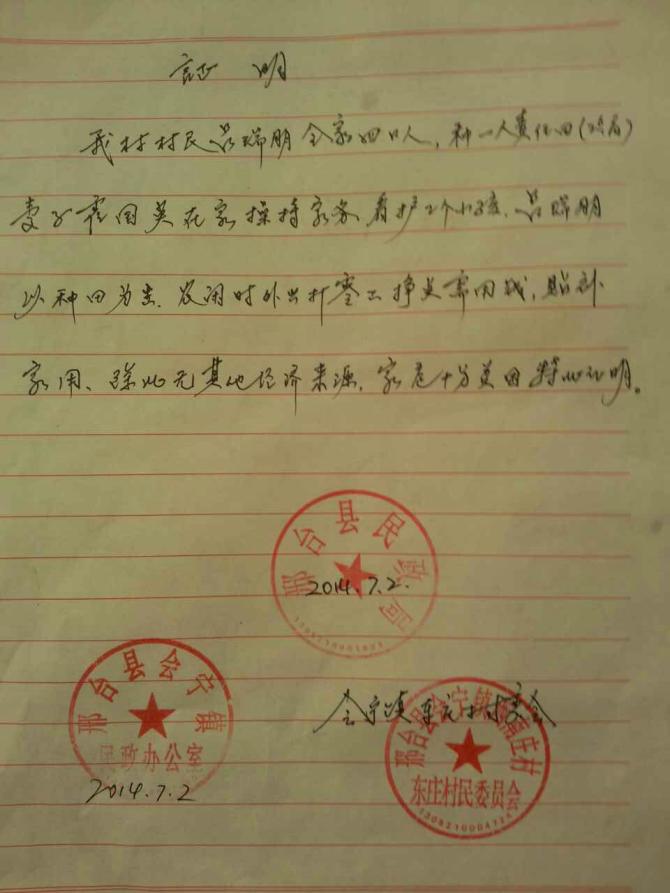 证 明
我村村民吕瑞朋全家四口人，种一人责任田（路居）
妻子霍国英在家操持家务，看护2个小孩，吕瑞朋
以种田为主，农闲时外出打零工挣点零用钱，贴补
家用、除此无其他经济来源，家庭十分困 特此证明。
邢台县民政局
2014.7.2.
邢台县会宁镇
民政办公室
2014.7.2
会宁镇东庄村村委会
邢台县会宁镇 庄村
东庄村民委员会